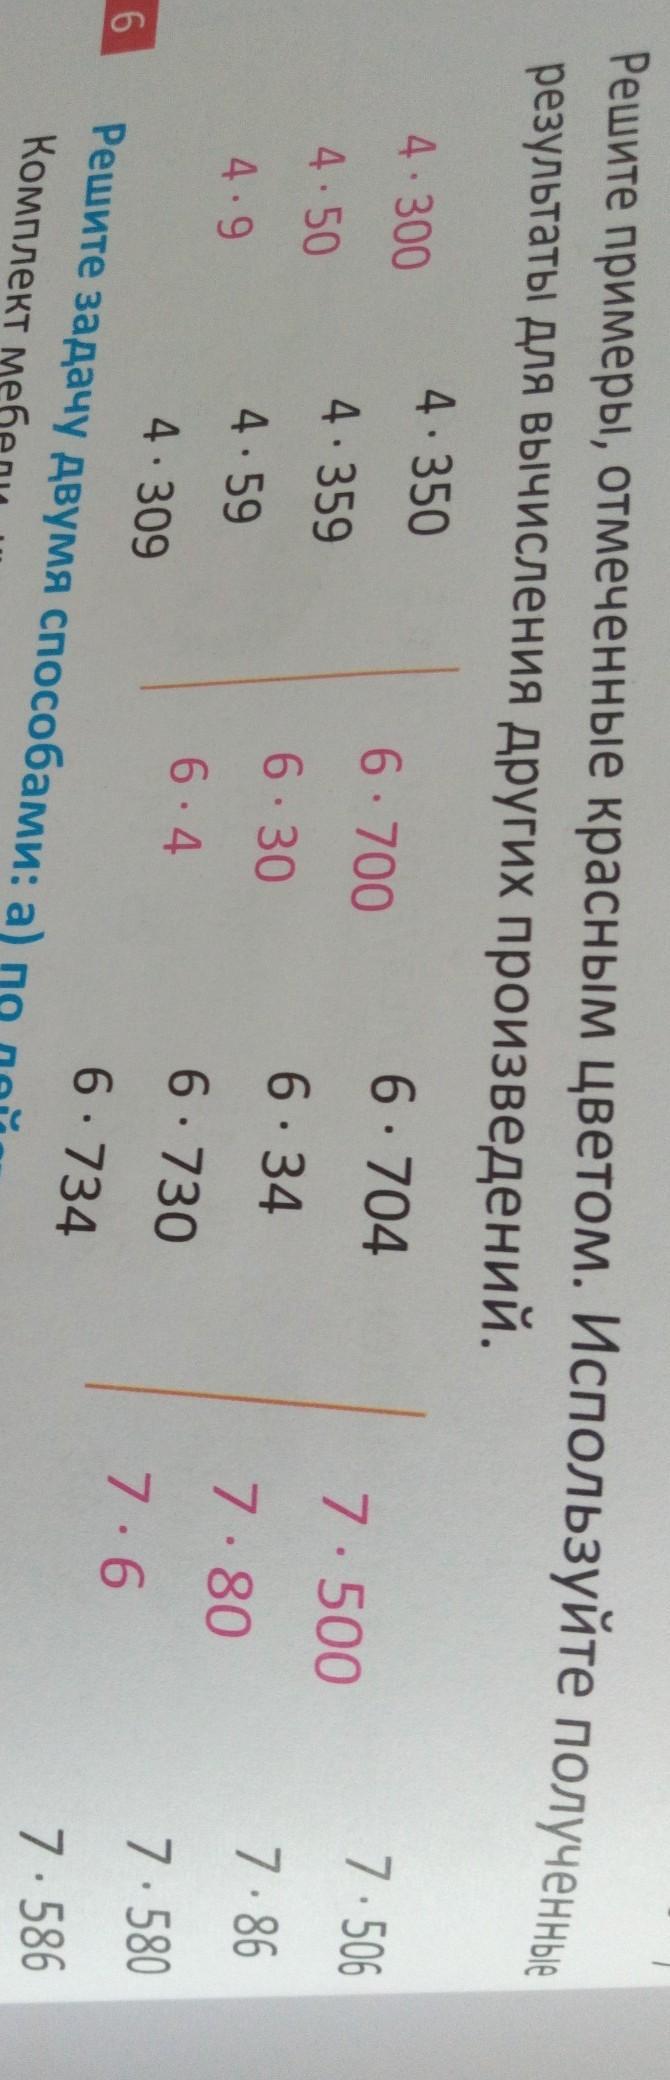 Решите примеры, отмеченные красным цветом. Используйте полученные
результаты для вычисления других произведений.
4 · 300 4 · 350 6 · 700 6 · 704 7 · 500 7 · 506
4 · 50 4 · 359 6 · 30 6 · 34 7 · 80 7 · 86
4 · 9 4 · 59 6 · 4 6 · 730 7 · 6 7 · 580
4 · 309 6 · 734 7 · 586
6 Решите задачу двумя способами: а) по
Комплект мебели